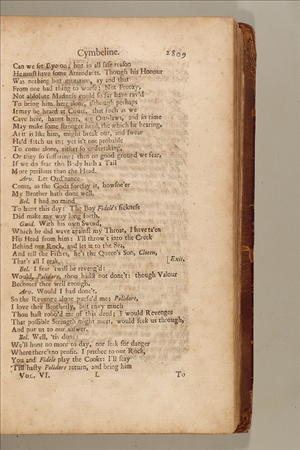 Cymbeline. 2809
Can we set Eye on; but in all safe reason
He must have some Attendants. Though his Honour
Was nothing but mutation, ay and that
From one bad thing to worse; Not Frenzy,
Not absolute Madness could so far have rav'd
To bring him here alone; although perhaps
It may be heard at Court, that such as we
Cave here, haunt here, are Out-laws, and in time
May make some stronger head, the which he hearing,
As it is like him, might break out, and swear
He'd fetch us in; yet is't not probable
To come alone, either so undertaking,
Or they so suffering; then on good ground we fear,
If we do fear this Body hath a Tail
More perilous than the Head.
Arv. Let Ord'nance
Come, as the Gods foresay it, howsoe'er
My Brother hath done well.
Bel. I had no mind
To hunt this day: The Boy Fidele's sickness
Did make my way long forth.
Guid. With his own Sword,
Which he did wave against my Throat, I have ta'en
His Head from him: I'll throw't into the Creek
Behind our Rock, and let it to the Sea,
And tell the Fishes, he's the Queen's Son, Cloten,
That's all I reak. [Exit.
Bel. I fear 'twill be reveng'd:
Would, Polidore, thou hadst not done't: though Valour
Becomes thee well enough.
Arv. Would I had done't,
So the Revenge alone pursu'd me: Polidore,
I love thee Brotherly, but envy much
Thou hast robb'd me of this deed; I would Revenges
That possible Strength might meet, would seek us through,
And put us to our answer.
Bel. Well, 'tis done:
We'll hunt no more to day, nor seek for danger
Where there's no profit. I prithee to our Rock,
You and Fidele play the Cooks: I'll stay
'Till hasty Polidore return, and bring him
Vol. VI. L To